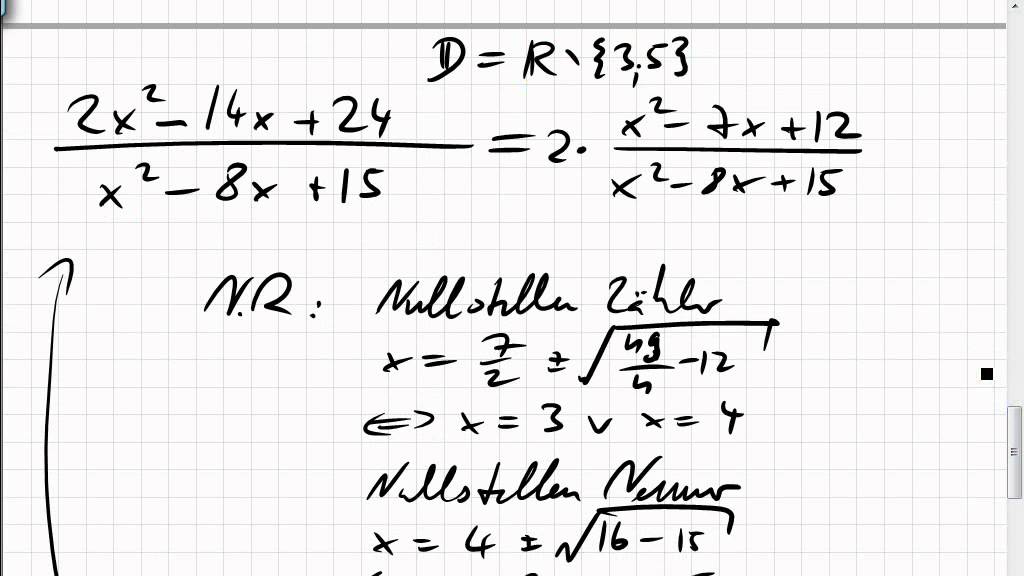 𝔻 = ℝ \ {3,5}
(2x² - 14x + 24)/(x² - 8x + 15) = 2 · (x² - 7x + 12)/(x² - 8x + 15)
N.R.: Nullstellen Zähler
x = 7/2 ± √(49/4 - 12)
⇔ x = 3 ∨ x = 4
Nullstellen Nenner
x = 4 ± √(16 - 15)